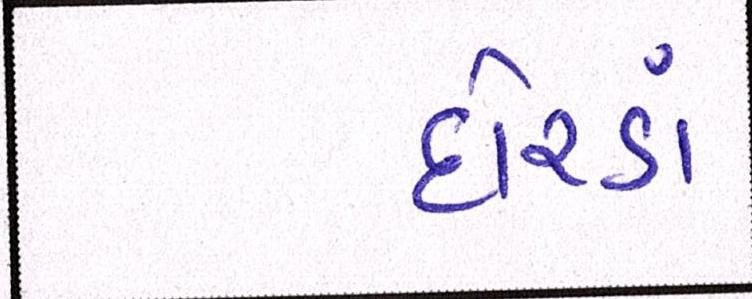 દોરડાં